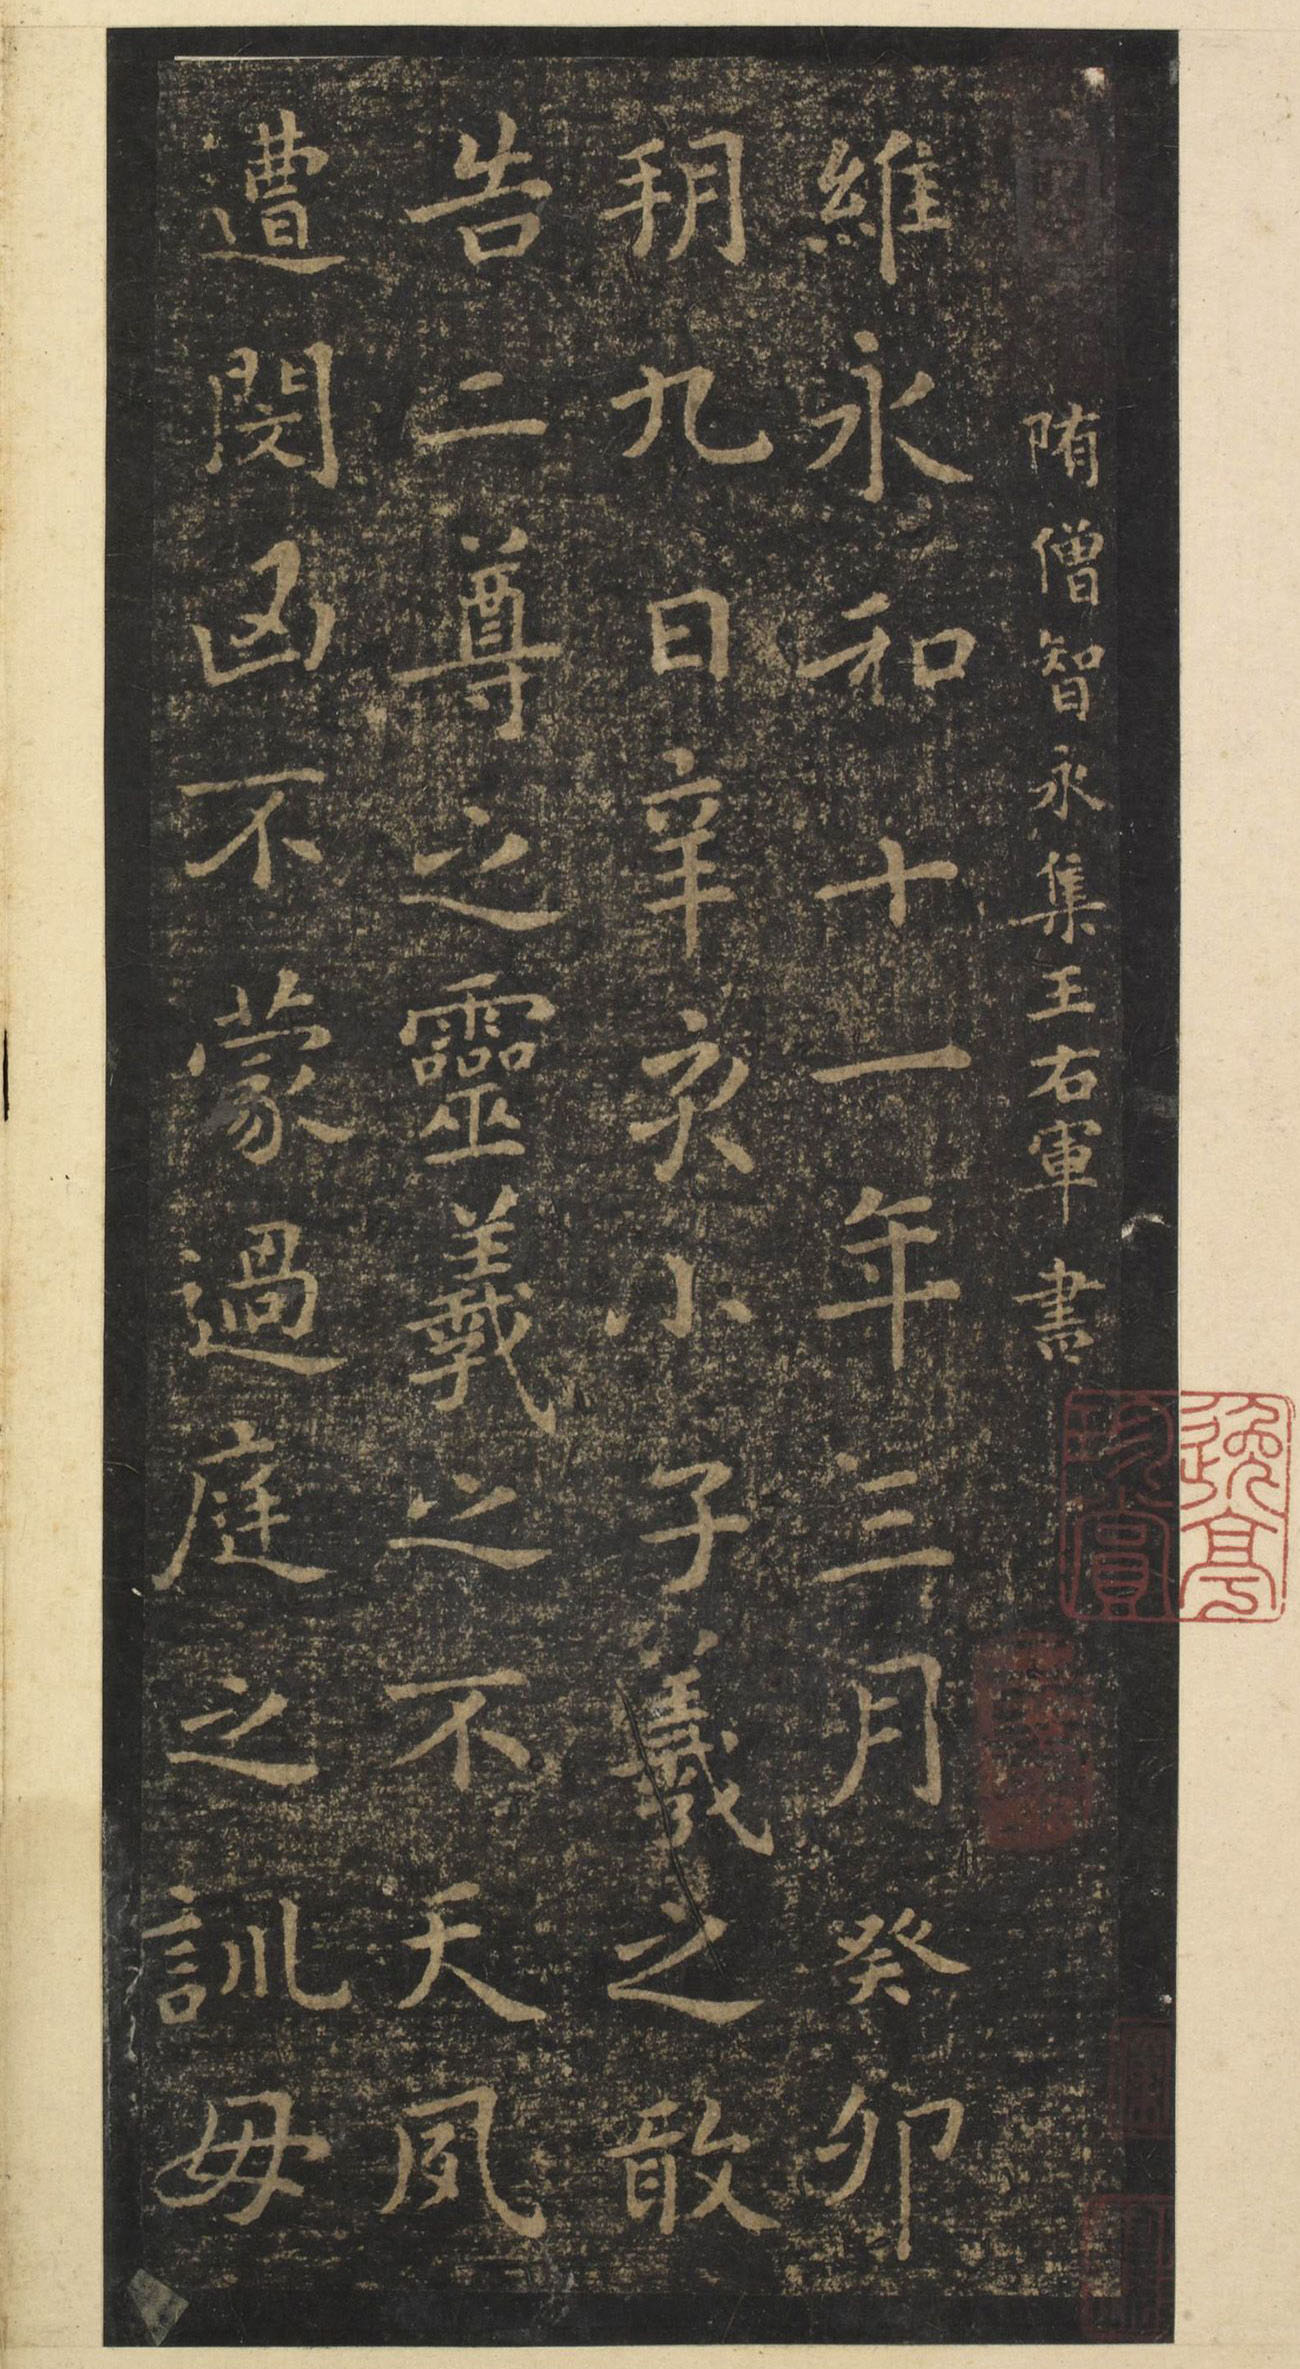 隋僧智永集王右軍書
維永和十一年三月癸卯
朔九日辛亥小子羲之敢
告二尊之靈羲之不天夙
遭閔凶不蒙過庭之訓毋
珍賞